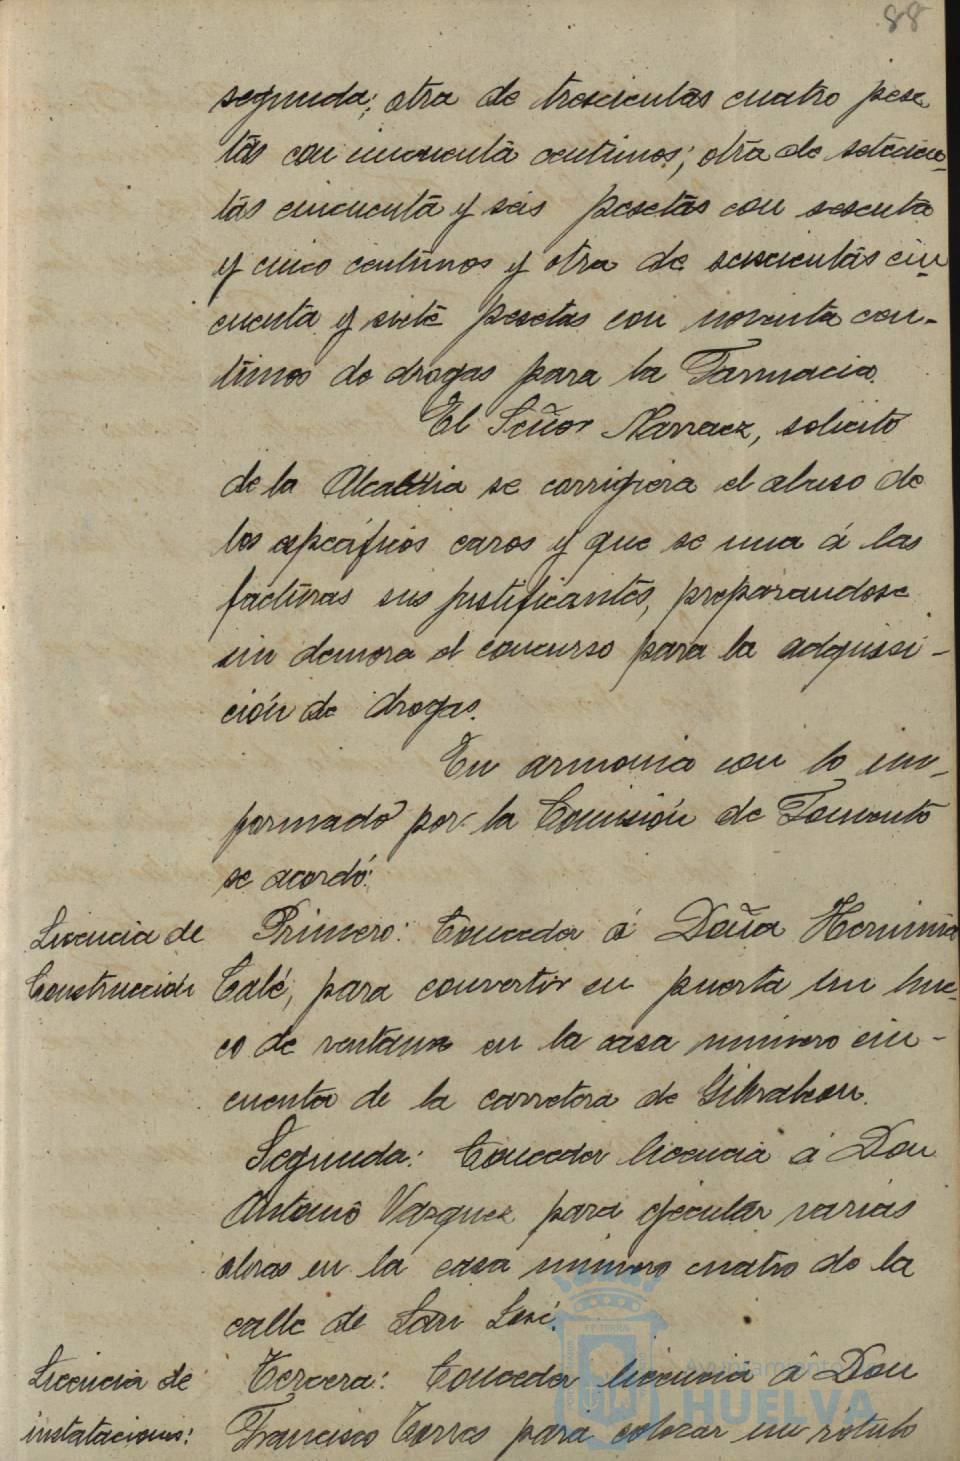 88
segunda; otra de trescientas cuatro pese
tas con cincuenta centimos; otra de setecien-
tas cincuenta y seis pesetas con sesenta
y cinco centimos y otra de seiscientas cin
cuenta y siete pesetas con noventa cen-
timos de drogas para la Farmacia.
El Señor Narvaez, solicito
de la Alcaldia se corrigiera el abuso de
los especificos caros y que se una á las
facturas sus justificantes, preparandose
sin demora el concurso para la adquisi-
ción de drogas.
En armonia con lo in-
formado por la Comisión de Fomento
se acordó:
Licencia de
Construcción
Primero: Conceder á Doña Herminia
Calé, para convertir en puerta un hue-
co de ventana en la casa número cin-
cuenta de la carretera de Gibraleon.
Segunda: Conceder licencia á Don
Antonio Vazquez para ejecutar varias
obras en la casa número cuatro de la
calle de San José.
Licencia de
instalaciones:
Tercera: Conceder licencia á Don
Francisco Torres para colocar un rótulo
Ayuntamiento
HUELVA